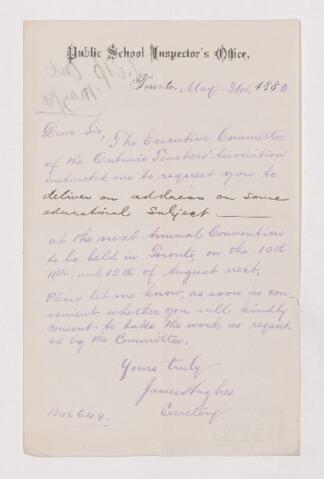 Public School Inspector's Office,
Toronto, May 31st, 1880
Dear Sir, The Executive Committee
of the Ontario Teachers' Association
instructed me to request you to
deliver an address on some
educational subject
at the next Annual Convention
to be held in Toronto, on the 10th
11th and 12th of August next.
Please let me know, as soon as con-
venient whether you will kindly
consent to take the work as request
ed by the Committee.
Yours truly
James Hughes
Secretary
Box 644.